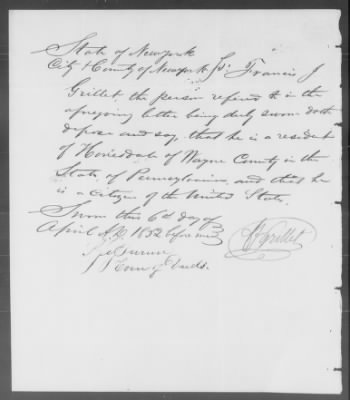 State of New York
City & County of New York Ss. Francis J
Grillet the person referred to in the
foregoing letter being duly sworn doth
depose and say, that he is a resident
of Honesdale of Wayne County in the
State of Pennsylvania, and that he
is a Citizen of the United State.
Sworn this 6th day of
April AD 1852 before me
F J Grillet
Com of Deeds.